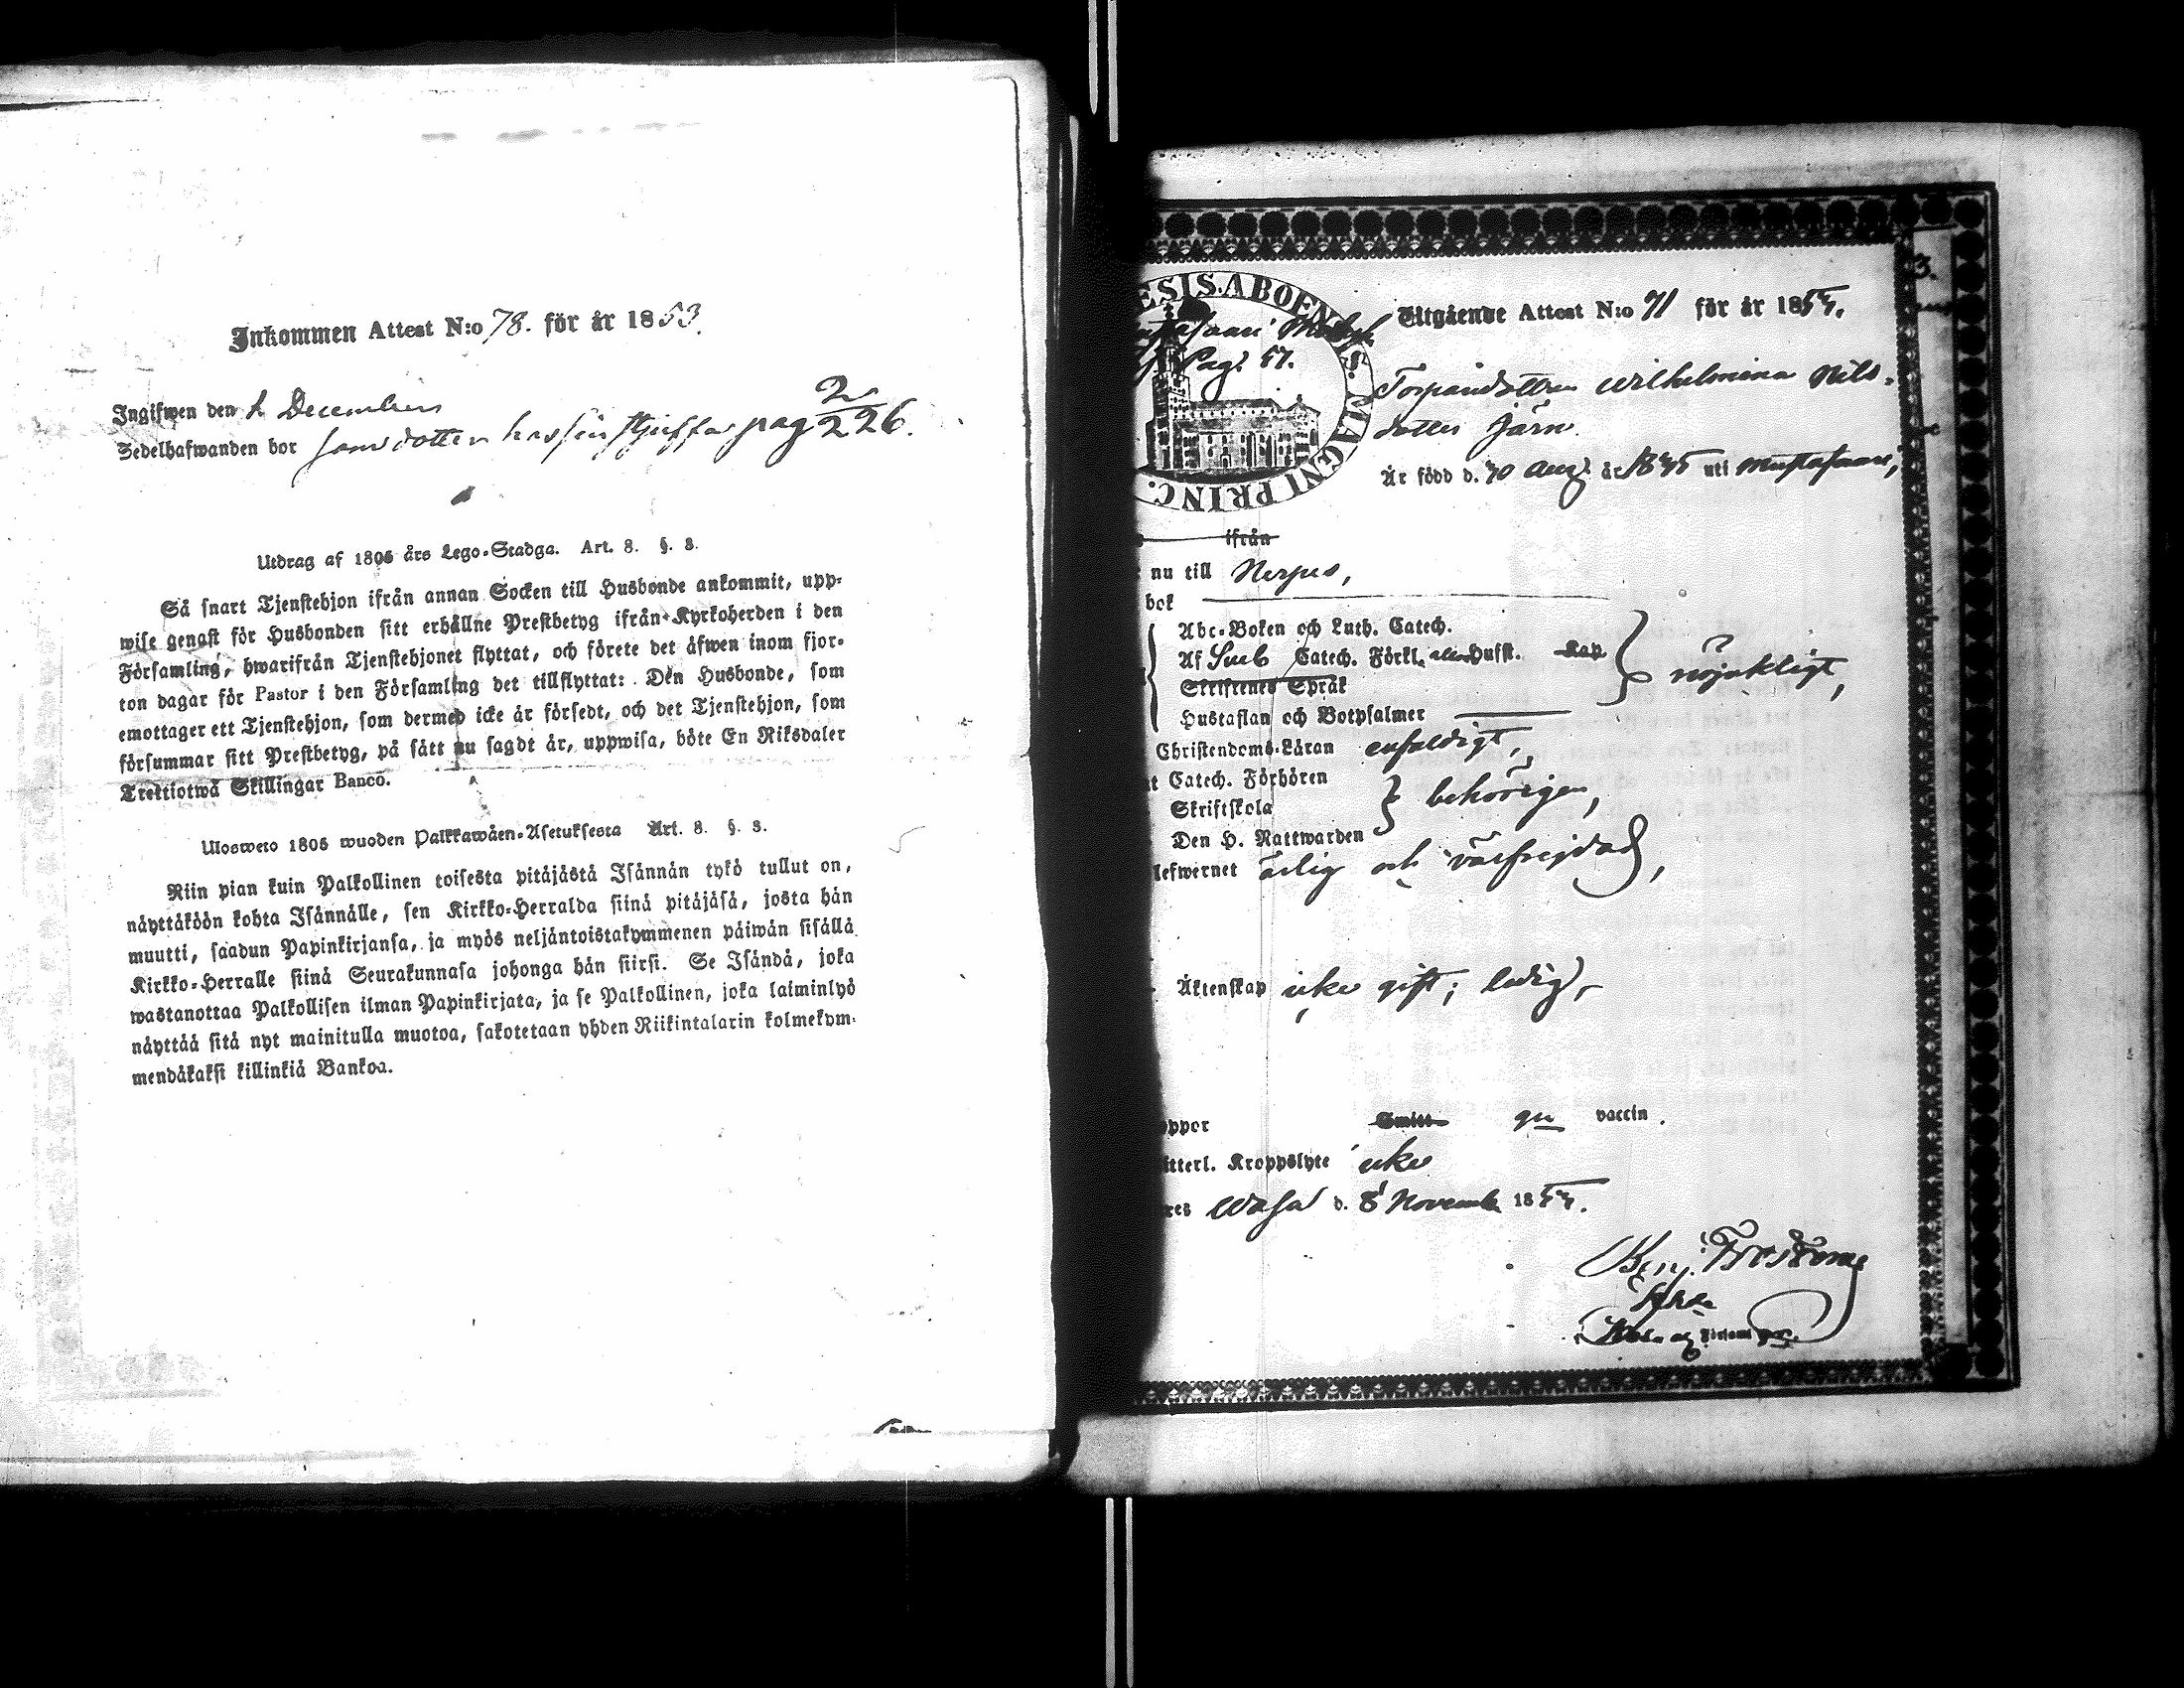 Inkommen Attest N:o 78. för år 1853.
Ingifwen den 2 December
Sedelhafwanden bor som dotter hos sin pag 2/226.
Utdrag af 1805 års Lego-Stadga. Art. 8. §. 3.
Så snart Tjenstehjon ifrån annan Socken till Husbonde ankommit, upp-
wise genast för Husbonden sitt erhållne Prestbetyg ifrån Kyrkoherden i den
Församling, hwarifrån Tjenstehjonet flyttat, och förete det äfwen inom fjor-
ton dagar för Pastor i den Församling det tillflyttat: Den Husbonde, som
emottager ett Tjenstehjon, som dermed icke är försedt, och det Tjenstehjon, som
försummar sitt Prestbetyg, på sätt nu sagdt är, uppwisa, böte En Riksdaler
Trettiotwå Skillingar Banco.
Ulosweto 1805 wuoden Palkkawäen-Asetuksesta Art. 8. §. 3.
Niin pian kuin Palkollinen toisesta pitäjästä Isännän tykö tullut on,
näyttäköön kohta Isännälle, sen Kirkko-Herralda siinä pitäjäsä, josta hän
muutti, saadun Papinkirjansa, ja myös neljäntoistakymmenen päiwän sisällä
Kirkko-Herralle siinä Seurakunnasa johonga hän siirsi. Se Isändä, joka
wastanottaa Palkollisen ilman Papinkirjata, ja se Palkollinen, joka laiminlyö
näyttää sitä nyt mainitulla muotoa, sakotetaan yhden Riikintalarin kolmekym-
mendäkaksi killinkiä Bankoa.
3.
ESIS. ABOENSIS. MAGNI PRINC.
Pag. 57.
Utgående Attest N:o 71 för år 1853.
Torpardottren Wilhelmina Nils-
dotter Järn.
Är född d. 30 Aug. år 1835 uti Mustasaari,
ifrån
nu till Nerpes,
bok
Abc-Boken och Luth. Catech.
Af Sveb Catech. Förkl. Husst. Kap
Skriftenes Språk
nöjaktigt,
Hustaflan och Botpsalmer
Christendoms-Läran enfaldigt,
t Catech. Förhören
Skriftskola
behörigen,
Den H. Nattwarden
lefwernet ärlig och välfrejdad,
Äktenskap icke gift; ledig,
opper Smitt gn vaccin.
tterl. Kroppslyte icke
res Wasa d. 8 Novemb. 1853.
Benj.
Församl.